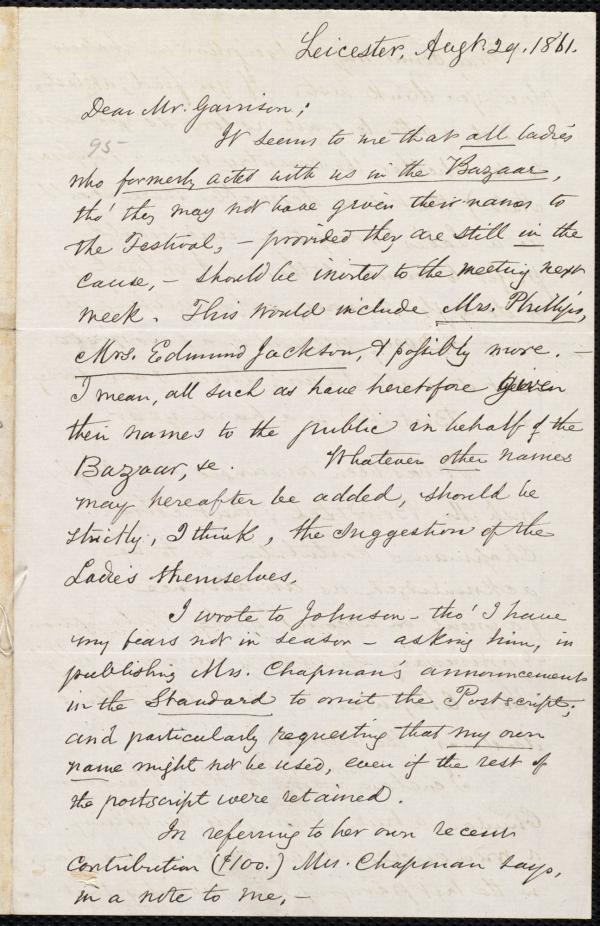 Leicester, Augt. 29. 1861.
Dear Mr. Garrison;
95-
It seems to me that all ladies
who formerly acted with us in the Bazaar,
tho' they may not have given their names to
the Festival, - provided they are still in the
cause, - should be invited to the meeting next
week. This would include Mrs. Phillips,
Mrs. Edmund Jackson, & possibly more. -
I mean, all such as have heretofore given
their names to the public in behalf of the
Bazaar, &c. Whatever other names
may hereafter be added, should be
strictly, I think, the suggestion of the
Ladies themselves.
I wrote to Johnson - tho' I have
my fears not in season - asking him, in
publishing Mrs. Chapman's announcements
in the Standard to omit the Postscript;
and particularly requesting that my own
name might not be used, even if the rest of
the postscript were retained.
In referring to her own recent
contribution ($100.) Mrs. Chapman says,
in a note to me, -